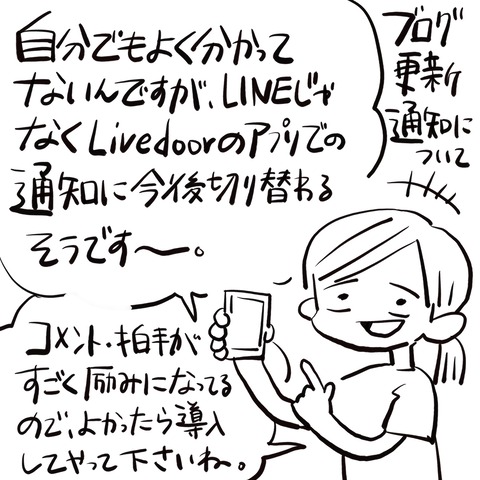 ブログ
更新
通知に
ついて
自分でもよく分かって
ないんですが、LINEじゃ
なくLivedoorのアプリでの
通知に今後切り替わる
そうです〜。
コメント・拍手が
すごく励みになってる
ので、よかったら導入
してやって下さいね〜。